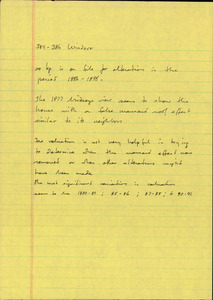 384-386 Windsor
no bp is on file for alterations in the
period 1880-1895.
The 1877 birdseye view seems to show the
house with a false mansard roof effect
similar to its neighbors.
The valuation is not very helpful in trying
to determine when the mansard effect was
removed or when other alterations might
have been made.
The most significant variation in valuation
seem to be 1880-81; 85-86; 87-88; & 90-91